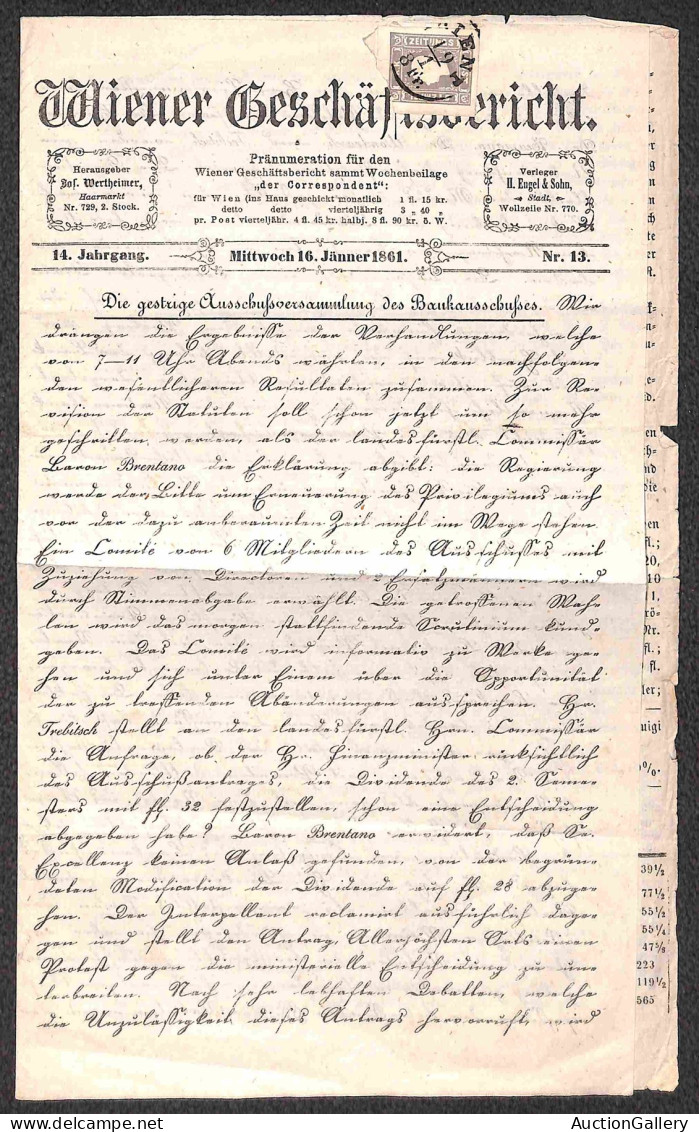 ZEITUNGS
WIEN
Wiener Geschäftsbericht.
Herausgeber
Jos. Wertheimer,
Haarmarkt
Nr. 729, 2. Stock.
Pränumeration für den
Wiener Geschäftsbericht sammt Wochenbeilage
„der Correspondent“:
für Wien (ins Haus geschickt monatlich 1 fl. 15 kr.
detto detto vierteljährig 3 „ 40 „
pr. Post vierteljähr. 4 fl. 45 kr. halbj. 8 fl. 90 kr. ö. W.
Verleger
H. Engel & Sohn,
Stadt,
Wollzeile Nr. 770.
14. Jahrgang.
Mittwoch 16. Jänner 1861.
Nr. 13.
Die gestrige Ausschußversammlung des Bankausschußes. Wir
drängen die Ergebnisse der Verhandlungen, welche
von 7–11 Uhr Abends währten, in den nachfolgen-
den wesentlicheren Resultaten zusammen. Zur Re-
vision der Statuten soll schon jetzt um so mehr
geschritten werden, als der landesfürstl. Commissär
Baron Brentano die Erklärung abgibt: die Regierung
werde der Bitte um Erneuerung des Privilegiums auch
vor der dazu anberaumten Zeit nicht im Wege stehen.
Ein Comité von 6 Mitgliedern des Ausschusses mit
Zuziehung von Directoren und 2 Ersatzmännern wird
durch Stimmenabgabe erwählt. Die getroffenen Wah-
len wird das morgen stattfindende Scrutinium kund-
geben. Das Comité wird informativ zu Werke ge-
hen und sich unter Einem über die Opportunität
der zu treffenden Abänderungen aussprechen. Hr.
Trebitsch stellt an den landesfürstl. Hrn. Commissär
die Anfrage, ob der Hr. Finanzminister rücksichtlich
des Ausschußantrages, die Dividende des 2. Seme-
sters mit fl. 32 festzustellen, schon eine Entscheidung
abgegeben habe? Baron Brentano erwidert, daß Se.
Excellenz keinen Anlaß gefunden, von der begrün-
deten Modification der Dividende auf fl. 28 abzuge-
hen. Der Interpellant reclamirt ausführlich dage-
gen und stellt den Antrag, Allerhöchsten Orts einen
Protest gegen die ministerielle Entscheidung zu un-
terbreiten. Nach sehr lebhaften Debatten, welche
die Unzulässigkeit dieses Antrags hervorruft, wird
uigi
39 1/2
77 1/2
55 1/2
55 1/4
47 5/8
223
119 1/2
565
AuctionGallery.com